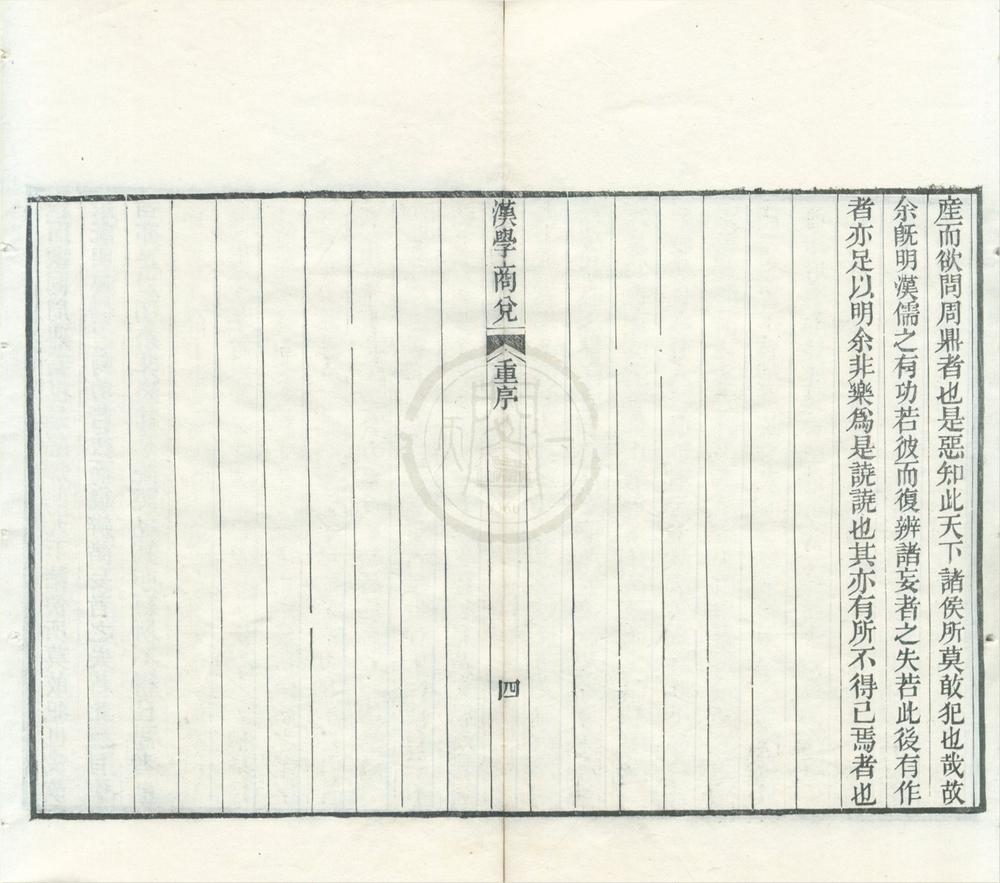 產而欲問周鼎者也是惡知此天下諸侯所莫敢犯也哉故
余旣明漢儒之有功若彼而復辨諸妄者之失若此後有作
者亦足以明余非樂爲是譊譊也其亦有所不得已焉者也
漢學商兌
重序
四